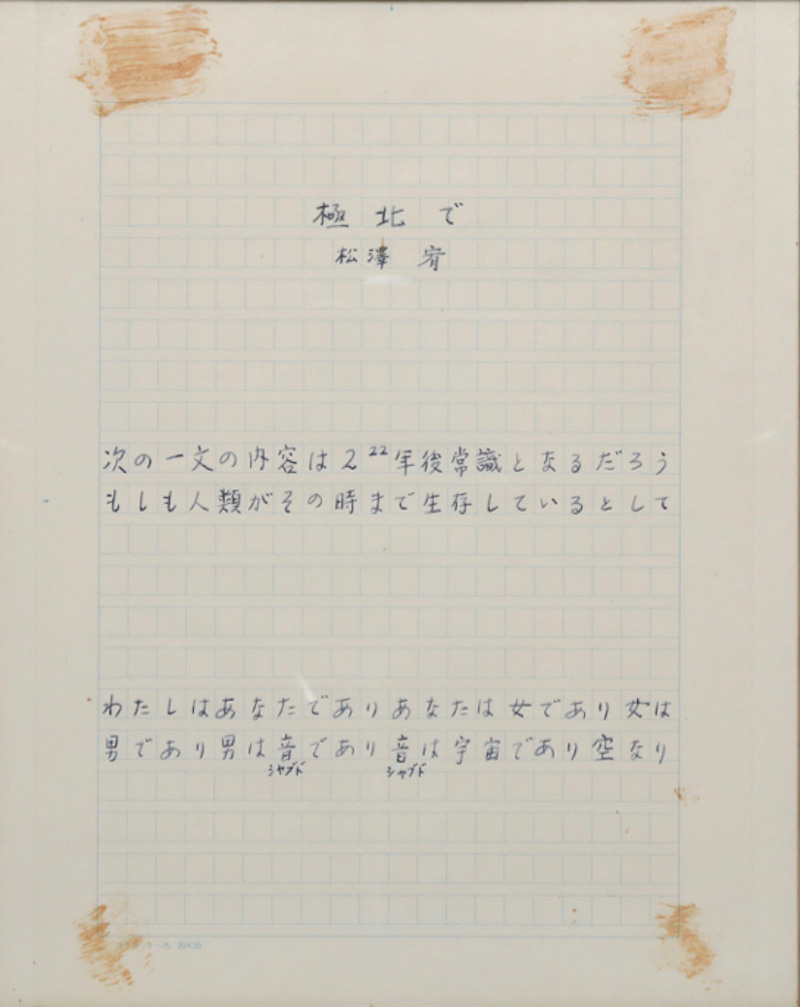 極北で
松澤 宥
次の一文の内容は2²²年後常識となるだろう
もしも人類がその時まで生存しているとして
わたしはあなたでありあなたは女であり女は
男であり男は音であり音は宇宙であり空なり
シャブド シャブド
20×20